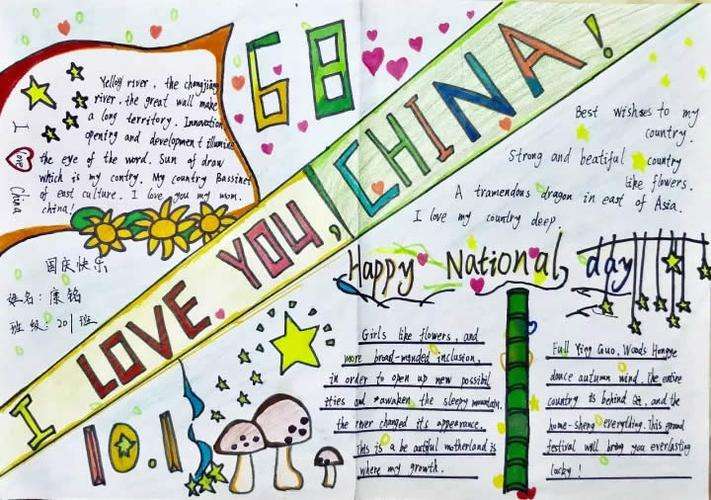 68
I LOVE YOU, CHINA!
I love China
Yellow river, the changjiang
river, the great wall make
a long territory. Innovation
opening and development illumine
the eye of the word. Sun of draw
which is my contry. My country Bassinet
of east culture. I love you my mom.
china!
Best wishses to my
country.
Strong and beatiful country
like flowers.
A tramendous dragon in east of Asia.
I love my country deep.
国庆快乐
姓名:康铭
班级:201班
Happy National day
10.1
Girls like flowers, and
more broad-minded inclusion,
in order to open up new possibil
ities and awaken the sleepy mountain.
the river changed its appearance.
This is a be autiful motherland is
where my growth.
Full Ying Guo. Woods Hongye
dance autumn wind. The entire
country is behind and the
home-sheng everything. This grand
festival will bring you everlasting
lucky!